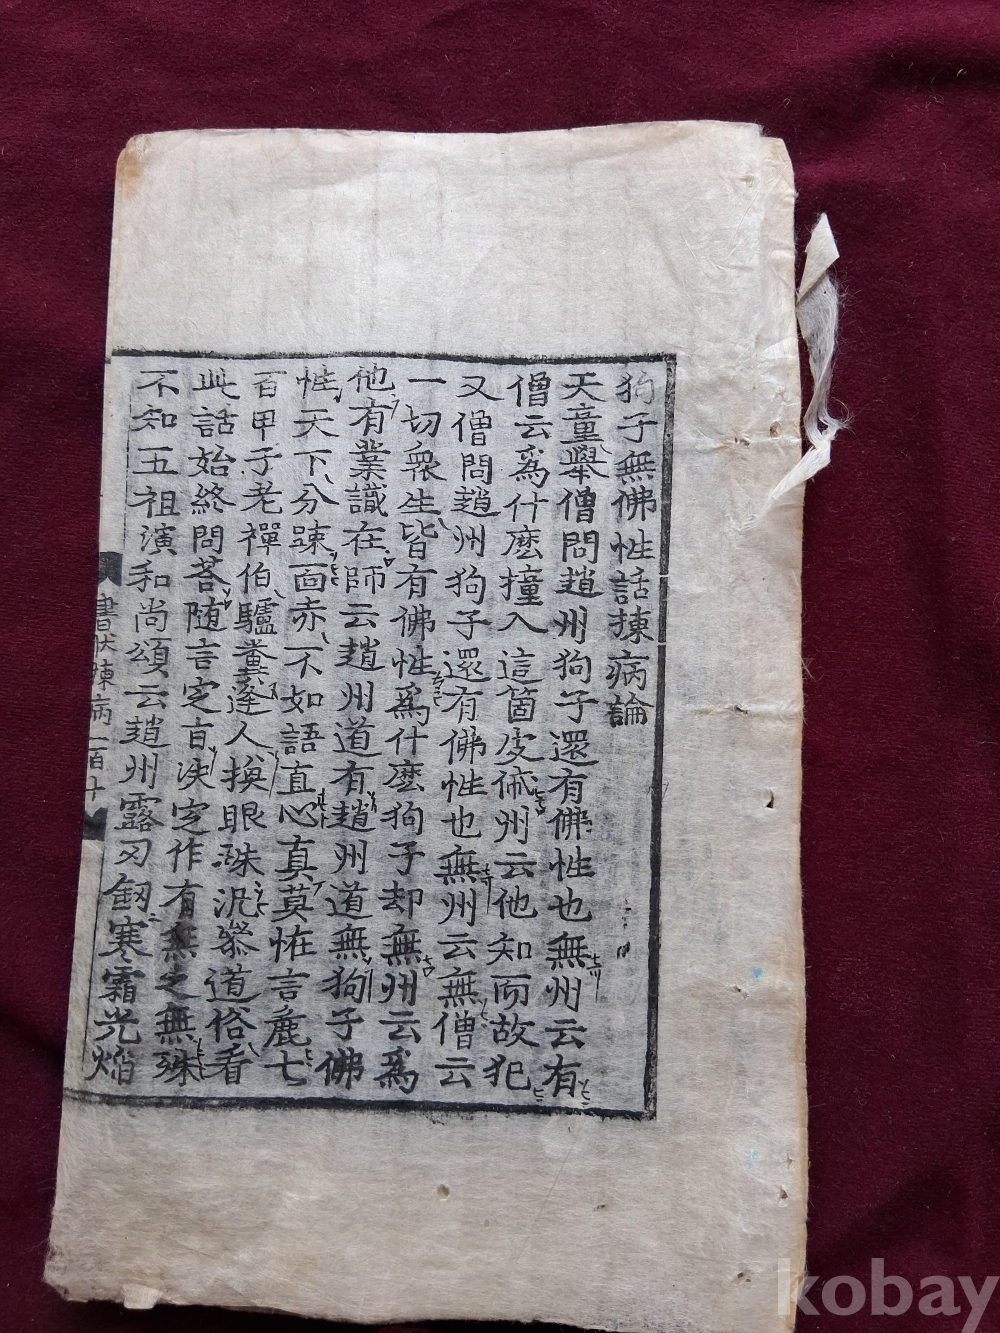 狗子無佛性話揀病論
天童舉僧問趙州狗子還有佛性也無州云有
僧云爲什麽撞入這箇皮俻州云他知而故犯
又僧問趙州狗子還有佛性也無州云無僧云
一切衆生皆有佛性爲什麽狗子却無州云爲
他有業識在師云趙州道有趙州道無狗子佛
性天下分踈面赤不如語直心真莫恠言麁七
百甲子老禪伯驢糞逢人換眼珠汎叅道俗看
此話始終問荅随言定旨决定作有無之無殊
不知五祖演和尚頌云趙州露刃釰寒霜光焰
書狀揀病一百十
kobay